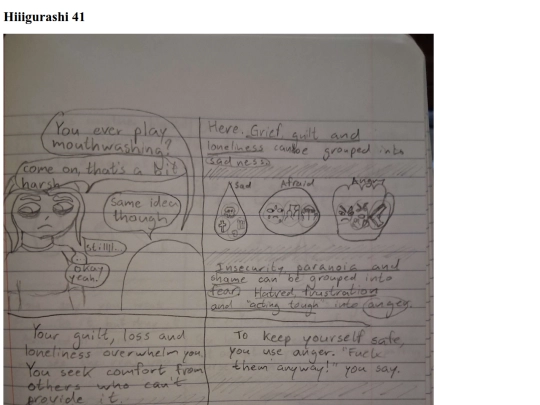 Hiiigurashi 41
You ever play
mouthwashing?
come on, that's a bit
harsh
Same idea
though
still..
Okay
yeah.
Here. Grief, guilt and
loneliness can be grouped into
sadness.
Sad
Afraid
Angry
Insecurity, paranoia and
shame can be grouped into
fear. Hatred, frustration
and "acting tough" into anger.
Your guilt, loss and
loneliness overwhelm you.
You seek comfort from
others who can't
provide it.
To keep yourself safe,
you use anger. "Fuck
them anyway!" you say.